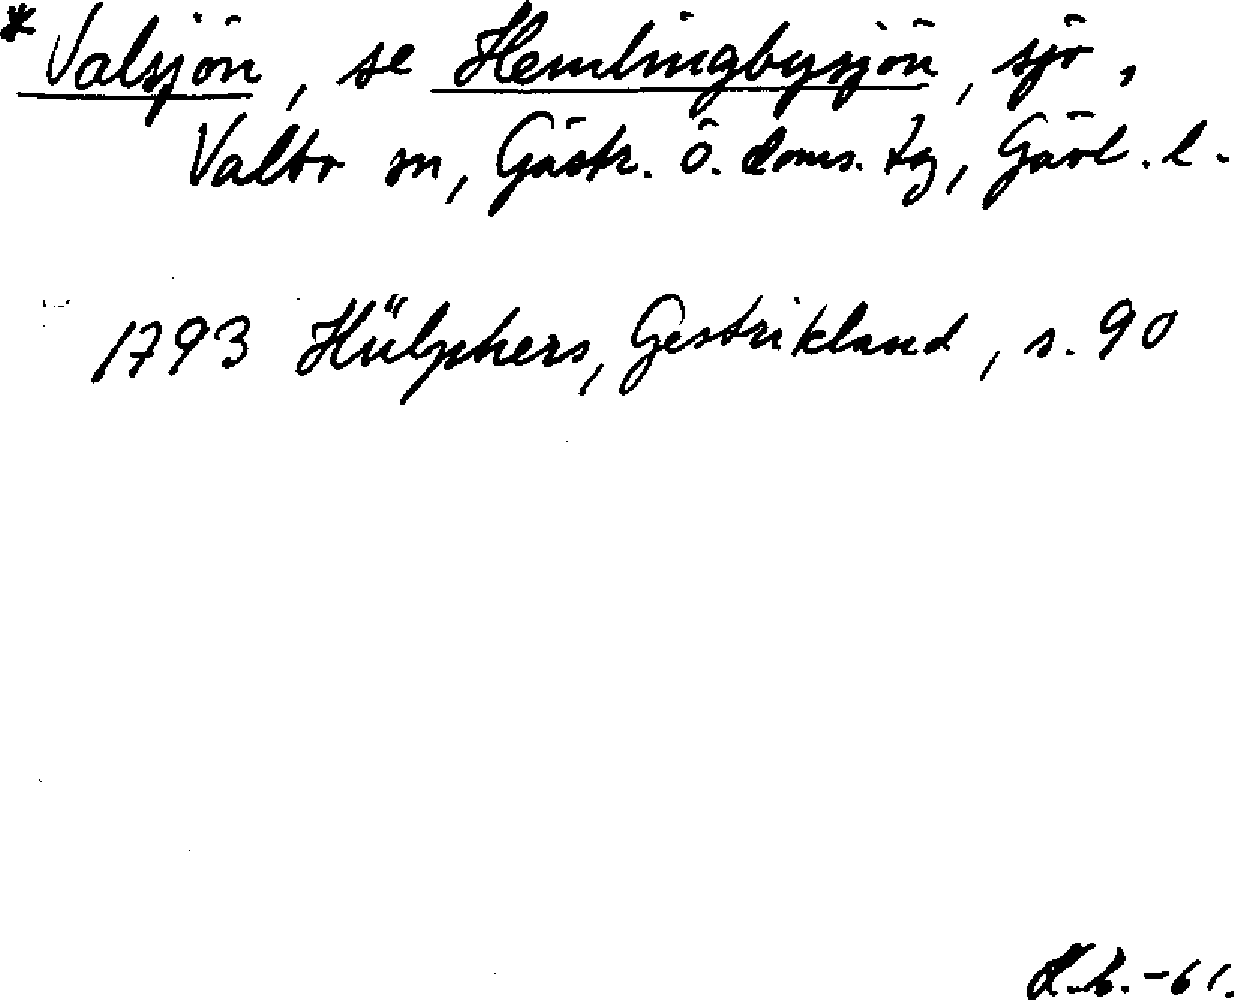 * Valsjön, se Hemlingbysjön, sjö,
Valbo sn, Gästr. ö. doms. tg, Gävl. l.
1793 Hülphers, Gestrikland, s. 90
H.b.-61.